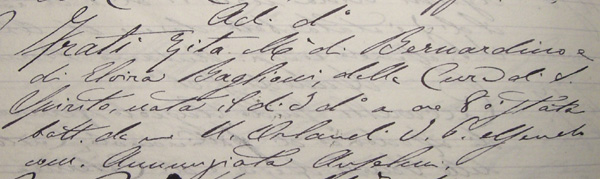 Ad. d°
Frati Gita Ma di Bernardino e
di Eloira Baglioni, della Cura di S.
Spirito, nata il dì 3 d° a ore 8 è stata
batt. da me Orlandi
com. Annunziata Anselmi.